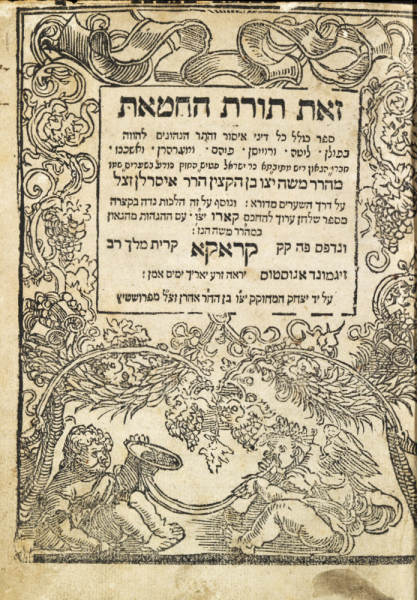 זאת תורת החטאת
ספר כולל כל דיני איסור והתר הנהוגים להווה
בפולן ליטה ורוייסן פיהם ומערהרן ואשכנז
חברו הגאון ריש מתיבתא כר ישראל פטיש החזק נודע בשערים שמו
מהרר משה יצו בן הקצין הרר איסרלן זצל
על דרך השערים מדורא : ונוסף על זה הלכות נדה בקצרה
מספר שלחן ערוך להחכם קארו יצו עם ההגהות מהגאון
כמהרר משה הנז :
ונדפס פה קק קראקא קרית מלך רב
זיגמונד אגוסטוס יראה זרע יאריך ימים אמן :
על יד יצחק המחוקק יצו בן הרר אהרן זצל מפרוסטיץ